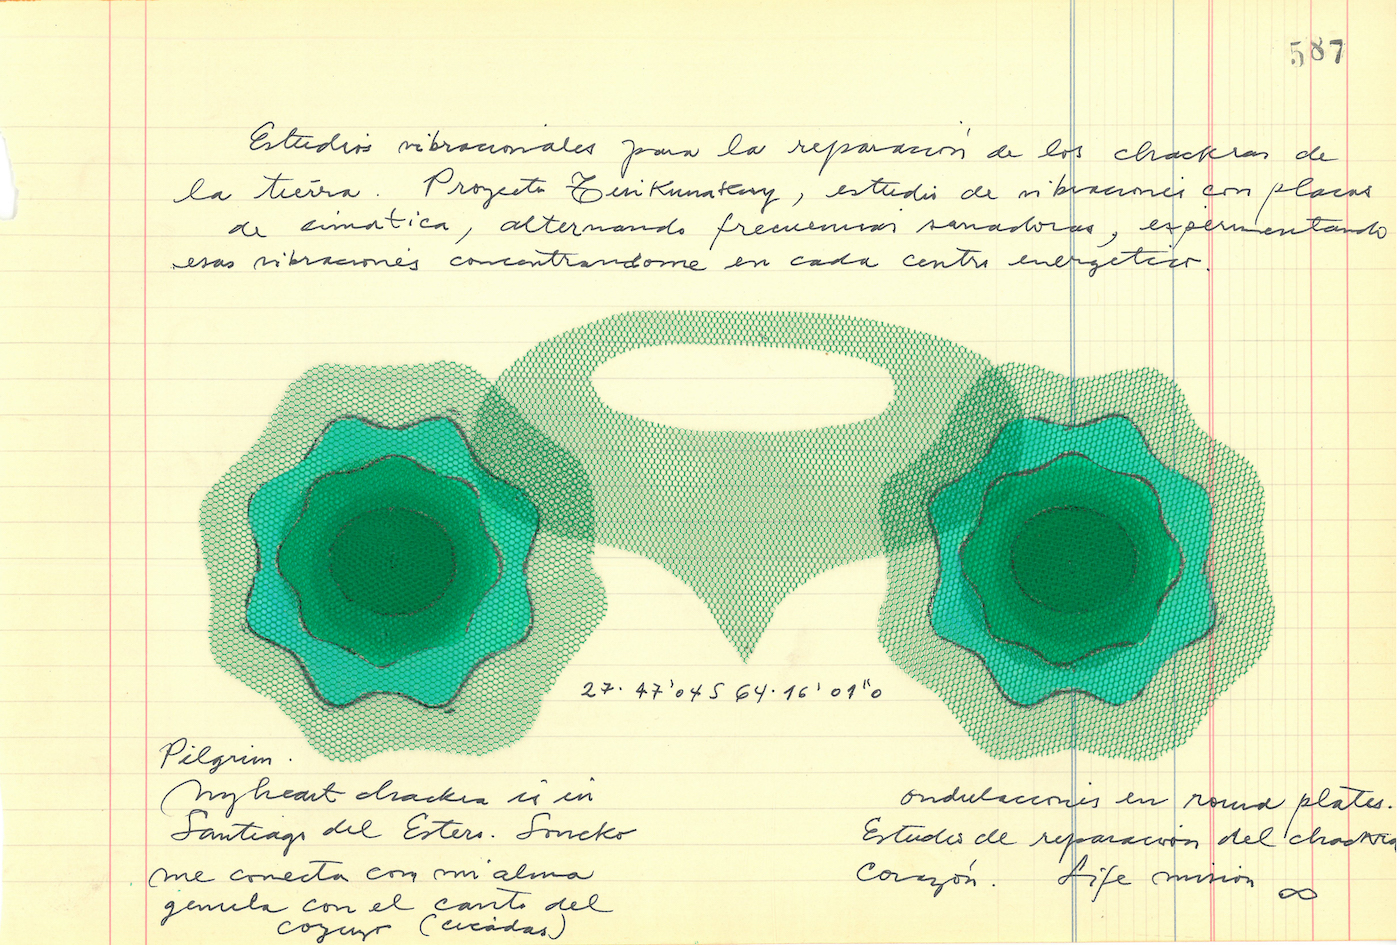 587
Estudios vibracionales para la reparación de los chackras de
la tierra. Proyecto Tinkunakuy, estudio de vibraciones con placas
de simática, alternando frecuencias sanadoras, experimentando
esas vibraciones concentrandome en cada centro energetico.
27· 47'04S 64·16'01"0
Pilgrim.
My heart chackra is in
Santiago del Estero. Soncko
me conecta con mi alma
gemela con el canto del
coyuyo (cicádas)
ondulaciones en round plates.
Estudio de reparación del chackra
Corazón. Life mision ∞